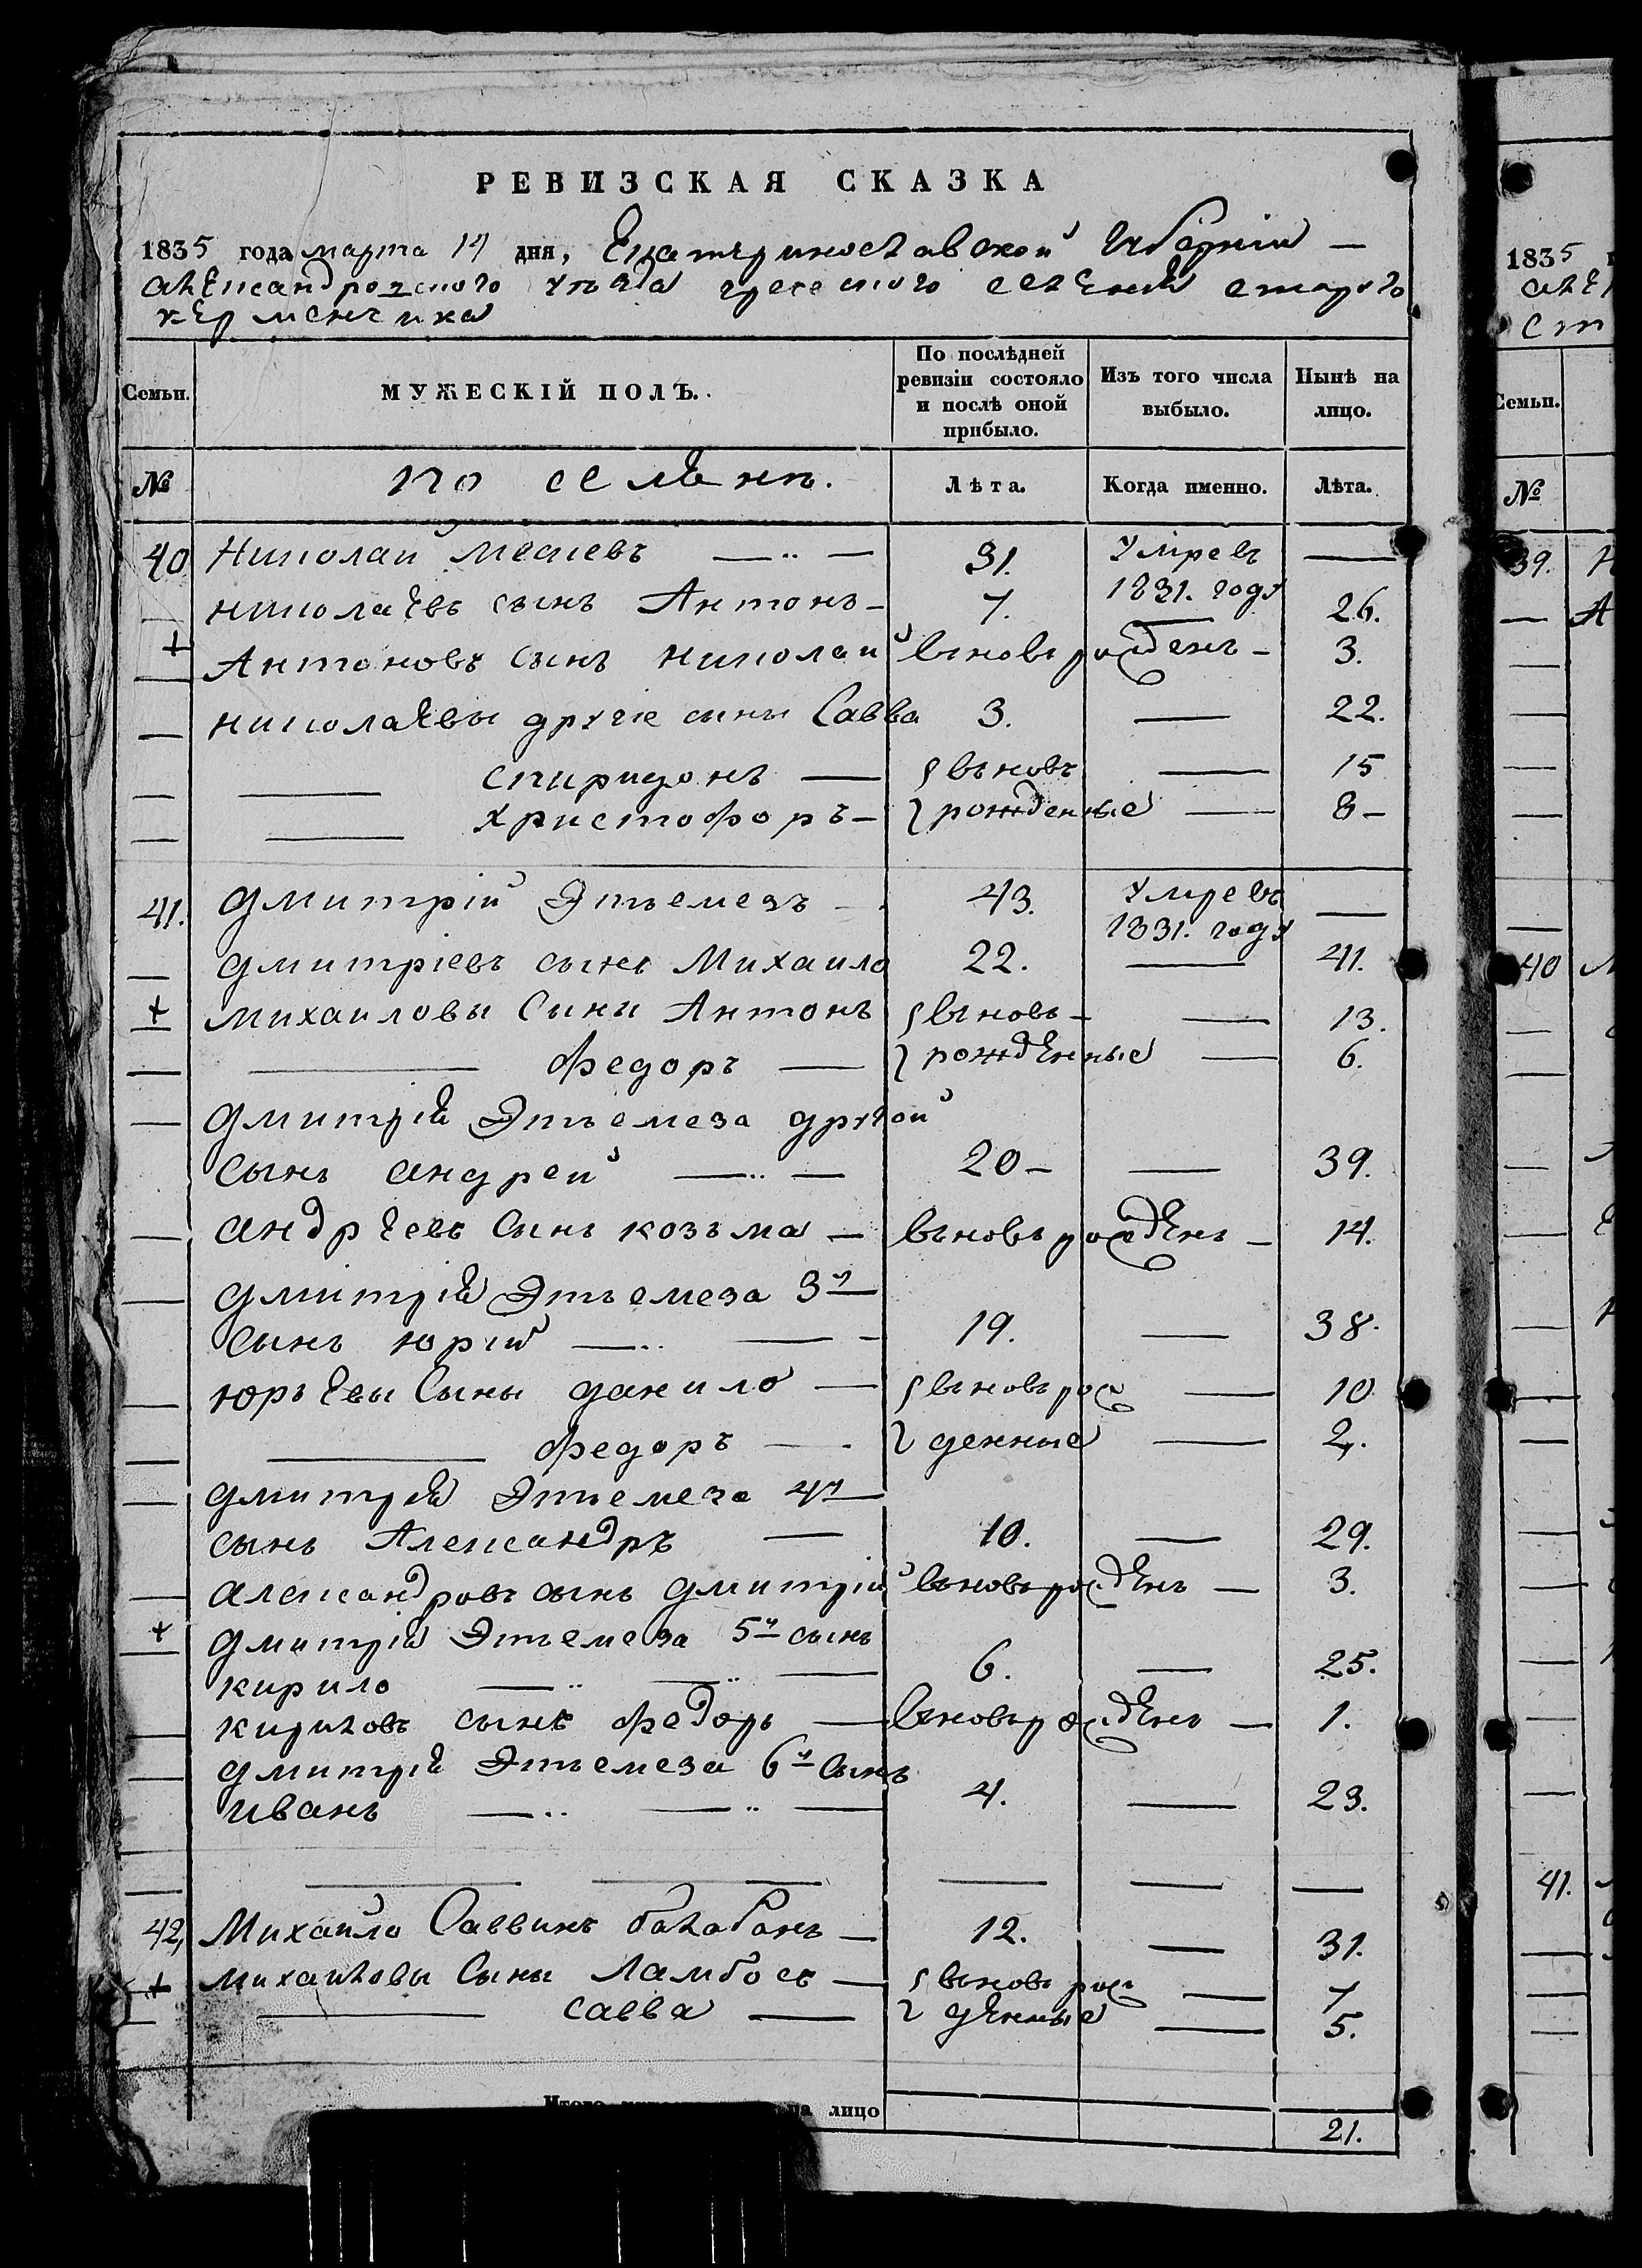 РЕВИЗСКАЯ СКАЗКА
1835 года марта 14 дня, Екатеринославской Губерніи —
александровского уѣзда греческого селенія старого
керменчика
Семьи. МУЖЕСКІЙ ПОЛЪ. По послѣдней ревизіи состояло и послѣ оной прибыло. Изъ того числа выбыло. Нынѣ на лицо.
№ Лѣта. Когда именно. Лѣта.
40 Николай — 31. Умре въ 1831. году —
николаевъ сынъ Антонъ — 7. 26.
+ Антоновъ сынъ николай вновь рожденъ — 3.
николаевы другіе сыны Савва 3. — 22.
— спиридонъ — вьновь — 15
— христофоръ — рожденные — 8 —
41. дмитрій Этъемезъ — 43. Умре въ 1831. году —
дмитріевъ сынъ Михаило 22. — 41.
+ михаиловы Сыны Антонъ вьновь — — 13.
— федоръ — рожденные — 6.
дмитрія Этъемеза другой
сынъ андрей — 20 — — 39.
андреевъ Сынъ козьма — вьновь рожденъ — 14.
дмитрія Этъемеза 3й
сынъ юрій — 19. — 38.
юрьевы Сыны данило — вьновь рож — 10
— федоръ — денные — 2.
дмитрія Этъемеза 4й
сынъ Александръ — 10. — 29.
александровъ сынъ дмитрій вьновь рожденъ — 3.
+ дмитрія Этъемеза 5й сынъ
кирило — 6. — 25.
кириловъ сынъ федоръ — вьновь рожденъ — 1.
дмитрія Этъемеза 6й Сынъ
иванъ — 4. — 23.
42, Михаило Саввинъ балабанъ — 12. — 31.
+ михаиловы Сыны Ламбосъ — вьновь рож — 7
— савва — денные — 5.
лицо 21.
1835
Семьи.
№
39.
40
41.